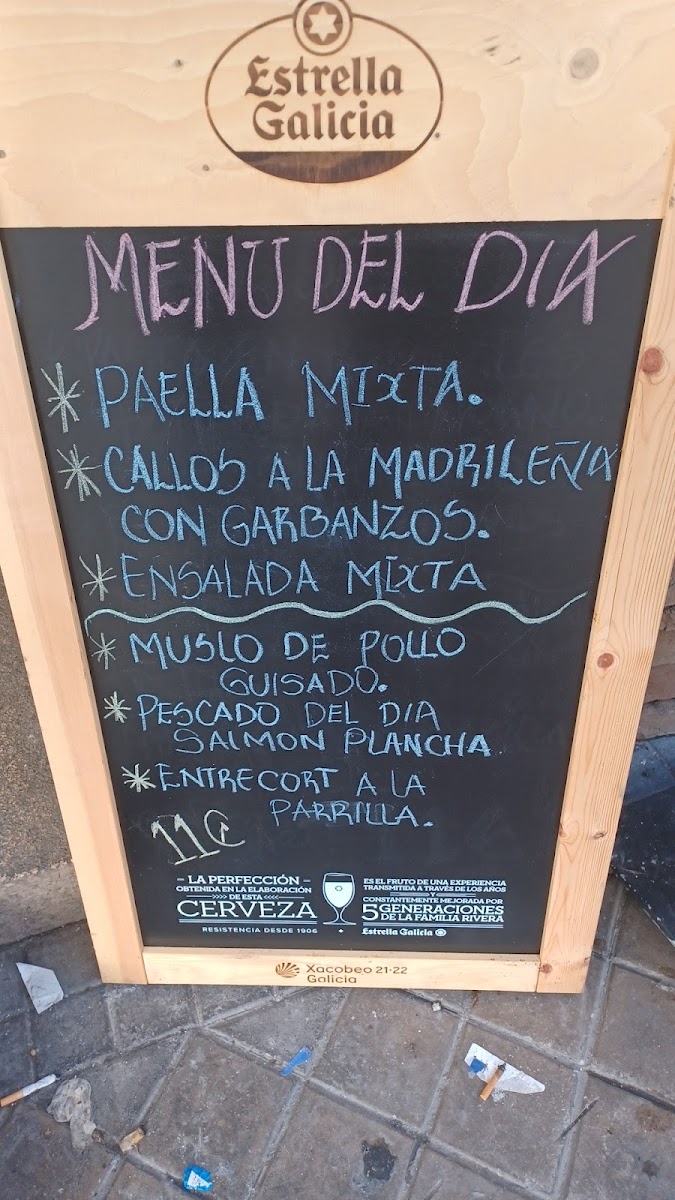 Estrella
Galicia
MENU DEL DIA
* PAELLA MIXTA.
* CALLOS A LA MADRILEÑA
CON GARBANZOS.
* ENSALADA MIXTA
* MUSLO DE POLLO
GUISADO.
* PESCADO DEL DIA
SALMON PLANCHA
* ENTRECORT A LA
PARRILLA.
11€
- LA PERFECCIÓN -
OBTENIDA EN LA ELABORACIÓN
DE ESTA
CERVEZA
RESISTENCIA DESDE 1906
ES EL FRUTO DE UNA EXPERIENCIA
TRANSMITIDA A TRAVÉS DE LOS AÑOS
Y
CONSTANTEMENTE MEJORADA POR
5 GENERACIONES
DE LA FAMILIA RIVERA
Estrella Galicia
Xacobeo 21·22
Galicia